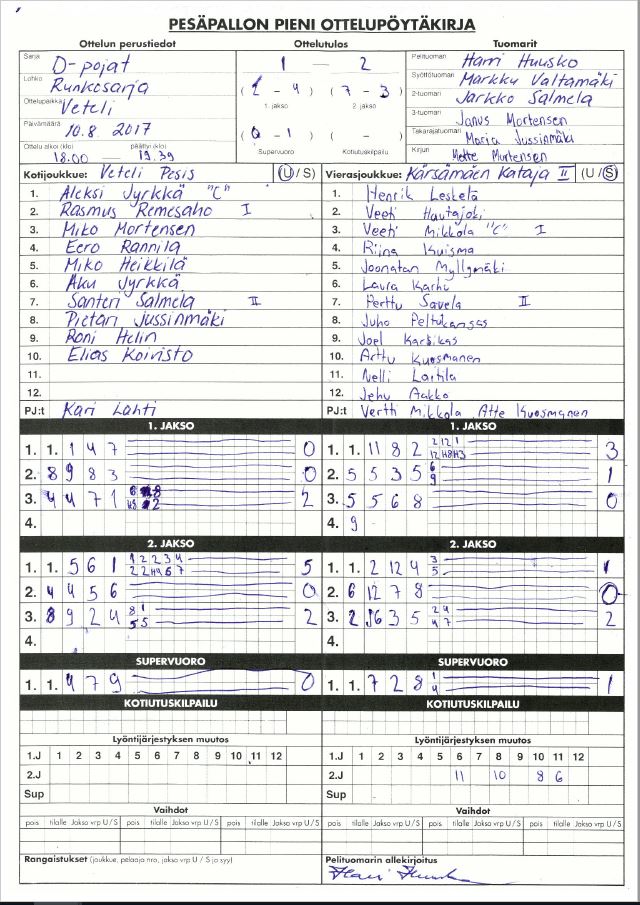 PESÄPALLON PIENI OTTELUPÖYTÄKIRJA
Ottelun perustiedot Ottelutulos Tuomarit
Sarja D-pojat
Lohko Runkosarja
Ottelupaikka Veteli
Päivämäärä 10.8 2017
Ottelu alkoi (klo) päättyi (klo)
18.00 — 19.39
1 — 2
( 2 - 4 ) ( 7 - 3 )
1. jakso 2. jakso
( 0 - 1 ) ( - )
Supervuoro Kotiutuskilpailu
Pelituomari Harri Huusko
Syöttötuomari Markku Valtamäki
2-tuomari Jarkko Salmela
3-tuomari Janus Mortensen
Takarajatuomari Marja Jussinmäki
Kirjuri Mette Mortensen
Kotijoukkue: Veteli Pesis (U / S) Vierasjoukkue: Kärsämäen Kataja II (U / S)
1. Aleksi Jyrkkä "C" 1. Henrik Leskelä
2. Rasmus Remesaho I 2. Veeti Hautajoki
3. Miko Mortensen 3. Veeti Mikkola "C" I
4. Eero Rannila 4. Riina Kuisma
5. Miko Heikkilä 5. Joonatan Myllymäki
6. Aku Jyrkkä 6. Laura Karhu
7. Santeri Salmela II 7. Perttu Savela II
8. Pietari Jussinmäki 8. Juho Peltokangas
9. Roni Helin 9. Joel Karsikas
10. Elias Koivisto 10. Arttu Kuosmanen
11. 11. Nelli Laitila
12. 12. Jehu Aakko
PJ:t Kari Lahti PJ:t Vertti Mikkola Atte Kuosmanen
1. JAKSO 1. JAKSO
1. 1. 1 4 7 0 1. 1. 11 8 2 3
2. 8 9 8 3 0 2. 5 5 3 5 6 9 1
3. 4 4 7 1 2 3. 5 5 6 8 0
4. 4. 9
2. JAKSO 2. JAKSO
1. 1. 5 6 1 5 1. 1. 2 12 4 3 5 1
2. 4 4 5 6 0 2. 6 12 7 8 0
3. 8 9 2 4 8 1 5 5 2 3. 6 3 5 2 4 4 7 2
4. 4.
SUPERVUORO SUPERVUORO
1. 1. 4 7 9 0 1. 1. 7 2 8 1 4 1
KOTIUTUSKILPAILU KOTIUTUSKILPAILU
Lyöntijärjestyksen muutos Lyöntijärjestyksen muutos
1.J 1 2 3 4 5 6 7 8 9 10 11 12 1.J 1 2 3 4 5 6 7 8 9 10 11 12
2.J 2.J 11 10 8 6
Sup Sup
Vaihdot Vaihdot
pois tilalle Jakso vrp U / S pois tilalle Jakso vrp U / S pois tilalle Jakso vrp U / S pois tilalle Jakso vrp U / S pois tilalle Jakso vrp U / S pois tilalle Jakso vrp U / S
Rangaistukset (joukkue, pelaaja nro, jakso vrp U / S ja syy) Pelituomarin allekirjoitus
Harri Huusko